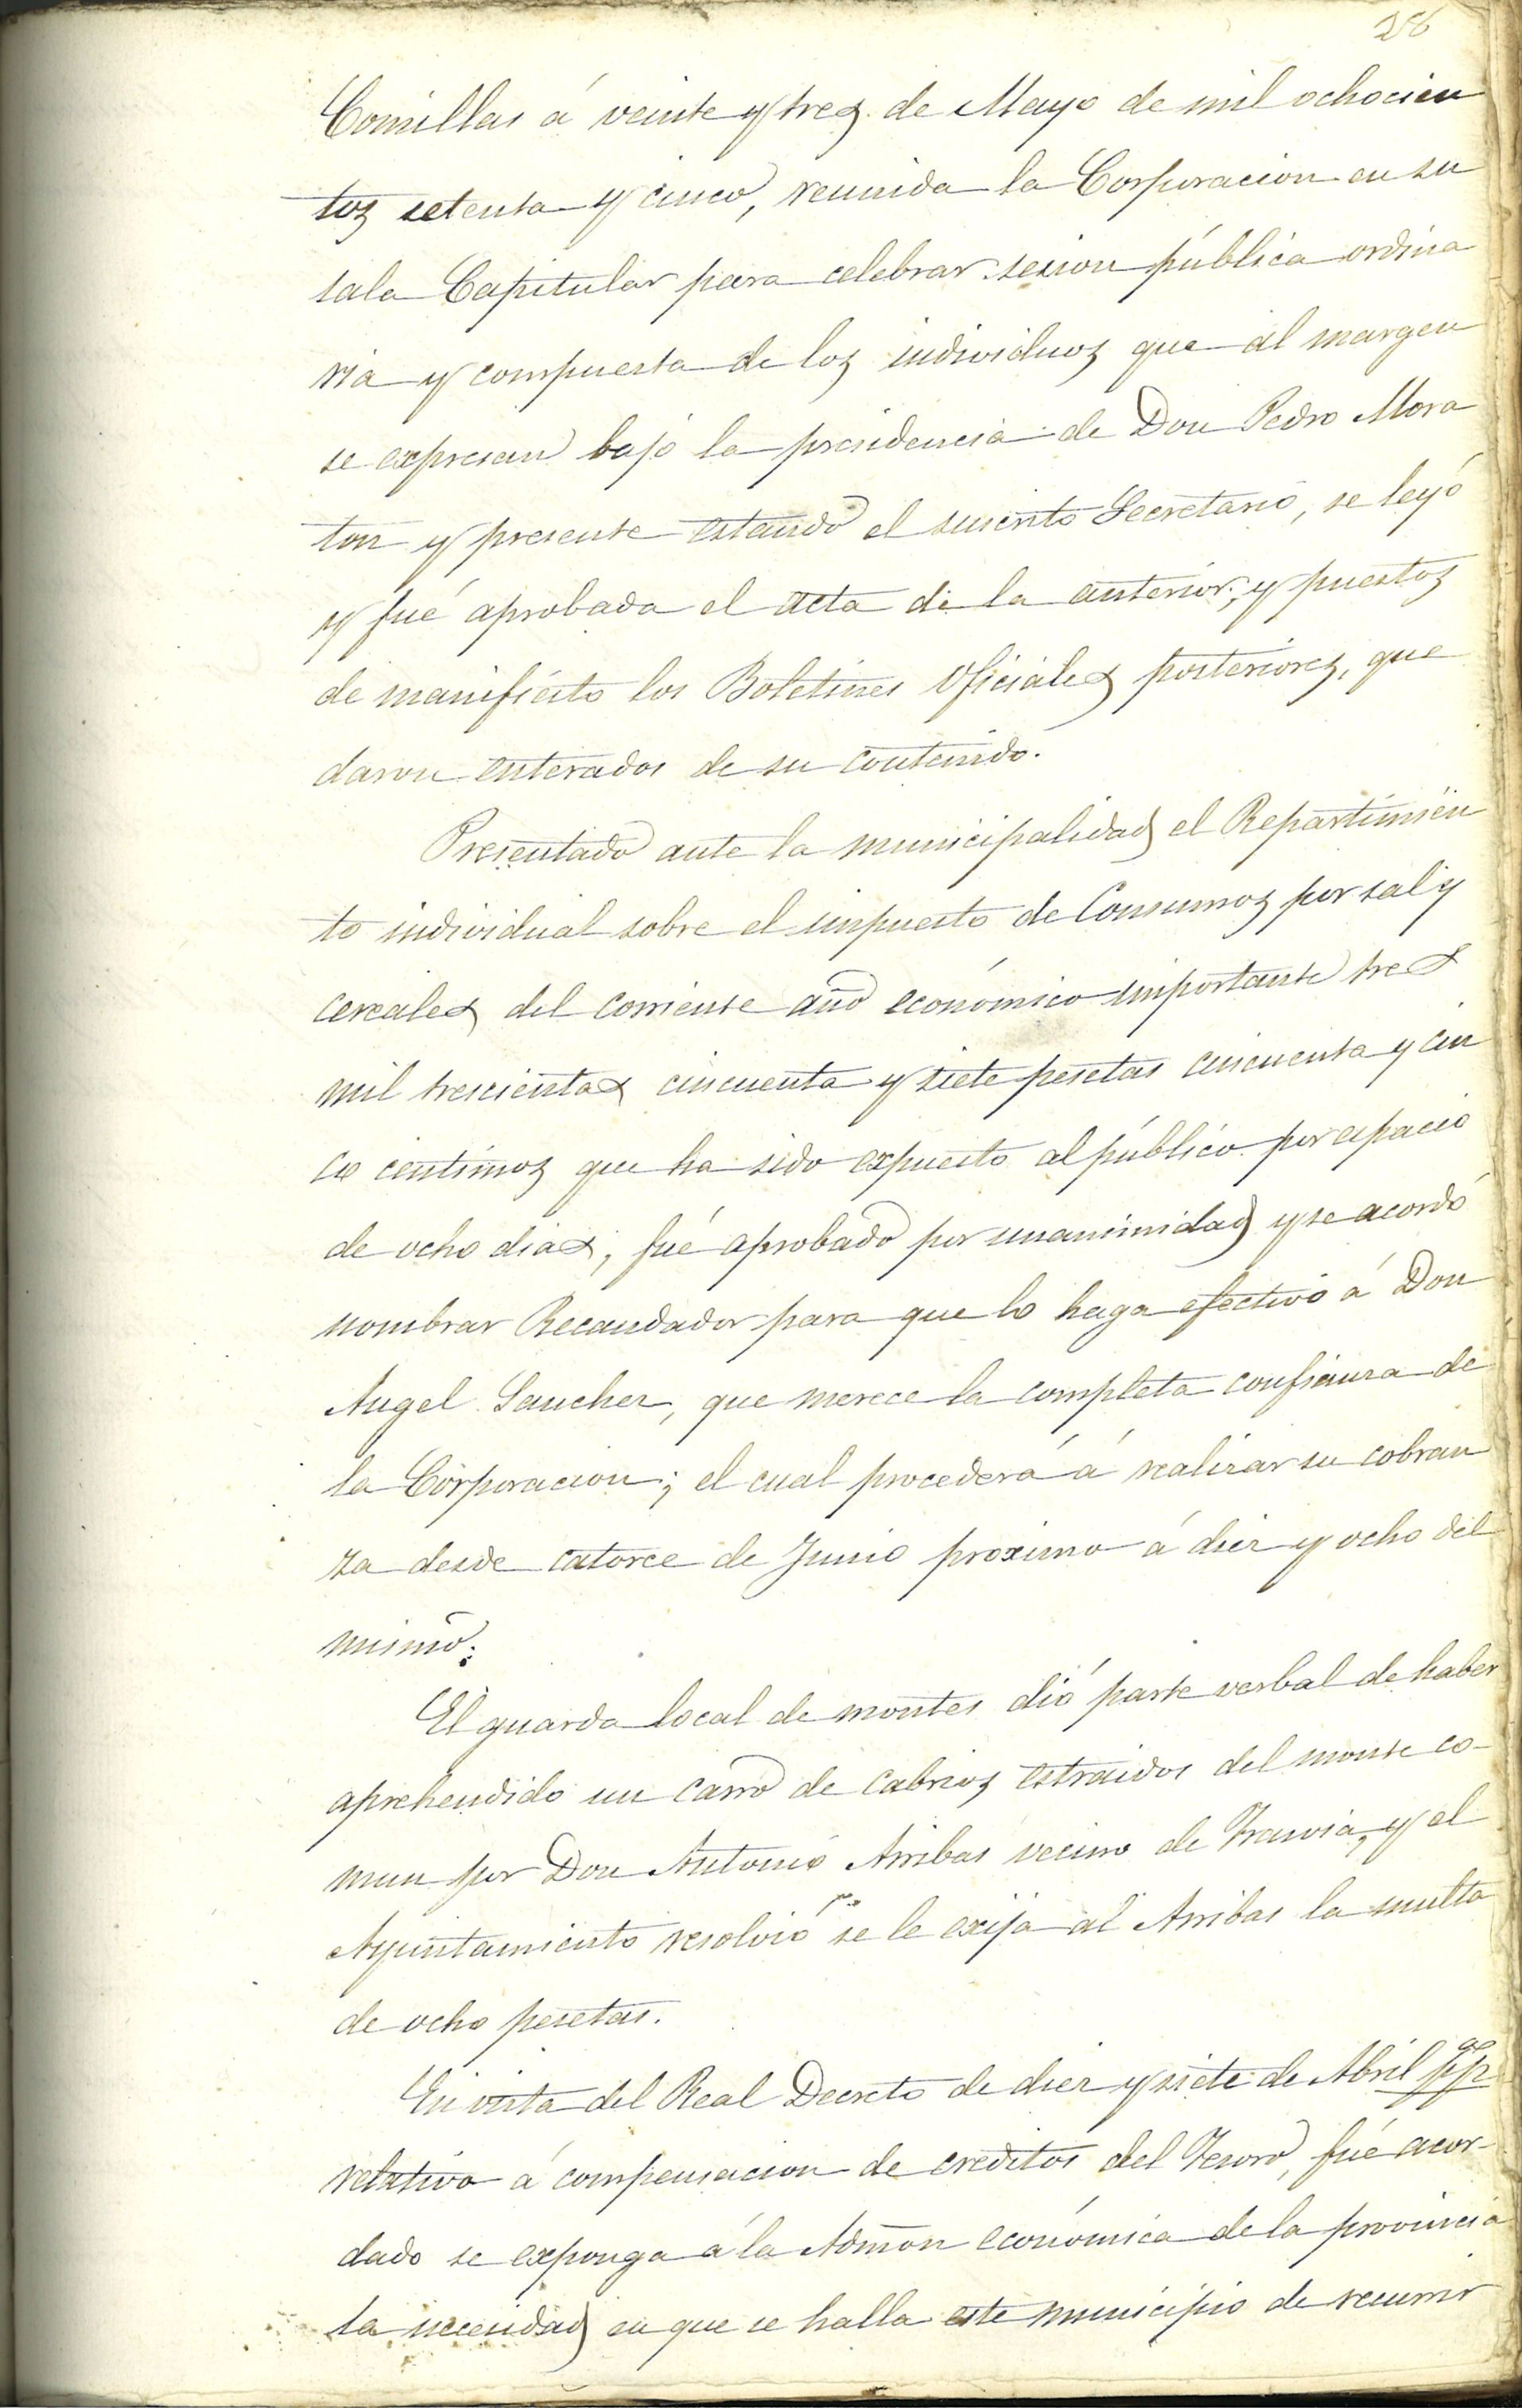 26
Comillas á veinte y tres de Mayo de mil ochocien
tos setenta y cinco, reunida la Corporacion en su
sala Capitular para celebrar sesion pública ordina
ria y compuesta de los individuos que al margen
se expresan bajo la presidencia de Don Pedro Mora
ton y presente estando el suscrito Secretario, se leyó
y fué aprobada el acta de la anterior, y puestos
de manifiesto los Boletines Oficiales posteriores, que
daron enterados de su contenido.
Presentado ante la municipalidad el Repartimien
to individual sobre el impuesto de Consumos por sal y
cereales del corriente año económico importante tres
mil trescientas cincuenta y siete pesetas cincuenta y cin
co centimos que ha sido expuesto al público por espacio
de ocho dias, fué aprobado por unanimidad y se acordó
nombrar Recaudador para que lo haga efectivo á Don
Angel Sanchez, que merece la completa confianza de
la Corporacion; el cual procederá á realizar su cobran
za desde catorce de Junio proximo á diez y ocho del
mismo.
El guarda local de montes dió parte verbal de haber
aprehendido un carro de cabrios estraidos del monte co-
mun por Don Antonio Arribas vecino de Trasvia, y el
Ayuntamiento resolvió se le exija al Arribas la multa
de ocho pesetas.
En vista del Real Decreto de diez y siete de Abril ppº
relativo á compensacion de creditos del Tesoro, fué acor-
dado se exponga á la Admon económica de la provincia
la necesidad en que se halla este municipio de recurrir